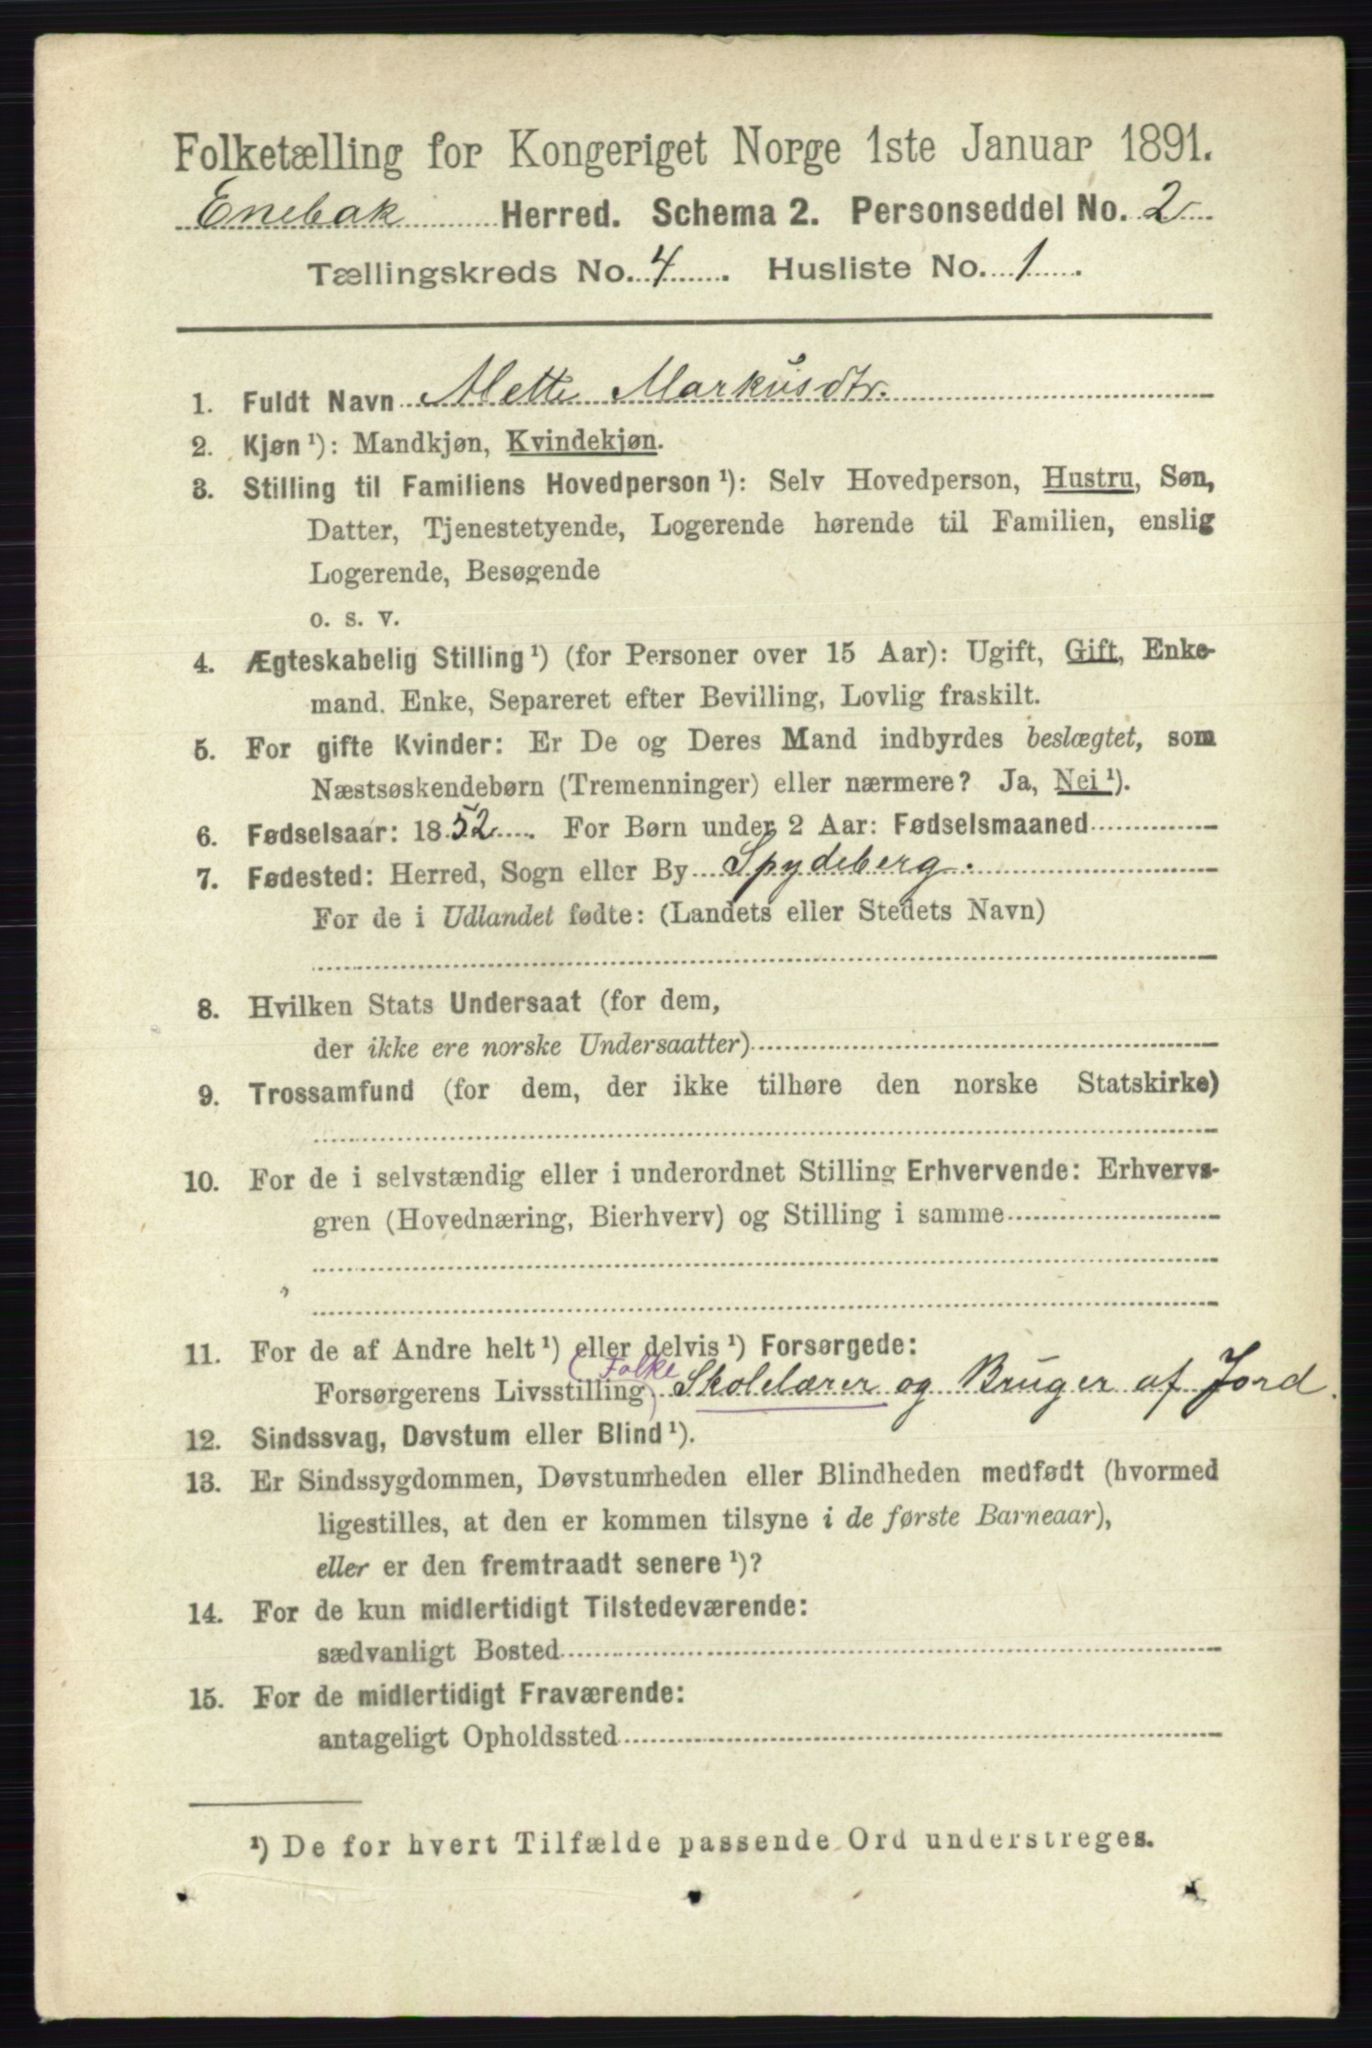 Folketælling for Kongeriget Norge 1ste Januar 1891.
Enebak Herred. Schema 2. Personseddel No. 2
Tællingskreds No. 4. Husliste No. 1.
1. Fuldt Navn Mette Markusdtr.
2. Kjøn ¹): Mandkjøn, Kvindekjøn.
3. Stilling til Familiens Hovedperson ¹): Selv Hovedperson, Hustru, Søn,
Datter, Tjenestetyende, Logerende hørende til Familien, enslig
Logerende, Besøgende
o. s. v.
4. Ægteskabelig Stilling ¹) (for Personer over 15 Aar): Ugift, Gift, Enke-
mand. Enke, Separeret efter Bevilling, Lovlig fraskilt.
5. For gifte Kvinder: Er De og Deres Mand indbyrdes beslægtet, som
Næstsøskendebørn (Tremenninger) eller nærmere? Ja, Nei ¹).
6. Fødselsaar: 1852. For Børn under 2 Aar: Fødselsmaaned
7. Fødested: Herred, Sogn eller By Spydeberg.
For de i Udlandet fødte: (Landets eller Stedets Navn)
8. Hvilken Stats Undersaat (for dem,
der ikke ere norske Undersaatter)
9. Trossamfund (for dem, der ikke tilhøre den norske Statskirke)
10. For de i selvstændig eller i underordnet Stilling Erhvervende: Erhvervs-
gren (Hovednæring, Bierhverv) og Stilling i samme
11. For de af Andre helt ¹) eller delvis ¹) Forsørgede:
(Folke
Forsørgerens Livsstilling) Skolelærer og Bruger af Jord.
12. Sindssvag, Døvstum eller Blind ¹).
13. Er Sindssygdommen, Døvstumheden eller Blindheden medfødt (hvormed
ligestilles, at den er kommen tilsyne i de første Barneaar),
eller er den fremtraadt senere ¹)?
14. For de kun midlertidigt Tilstedeværende:
sædvanligt Bosted
15. For de midlertidigt Fraværende:
antageligt Opholdssted
¹) De for hvert Tilfælde passende Ord understreges.